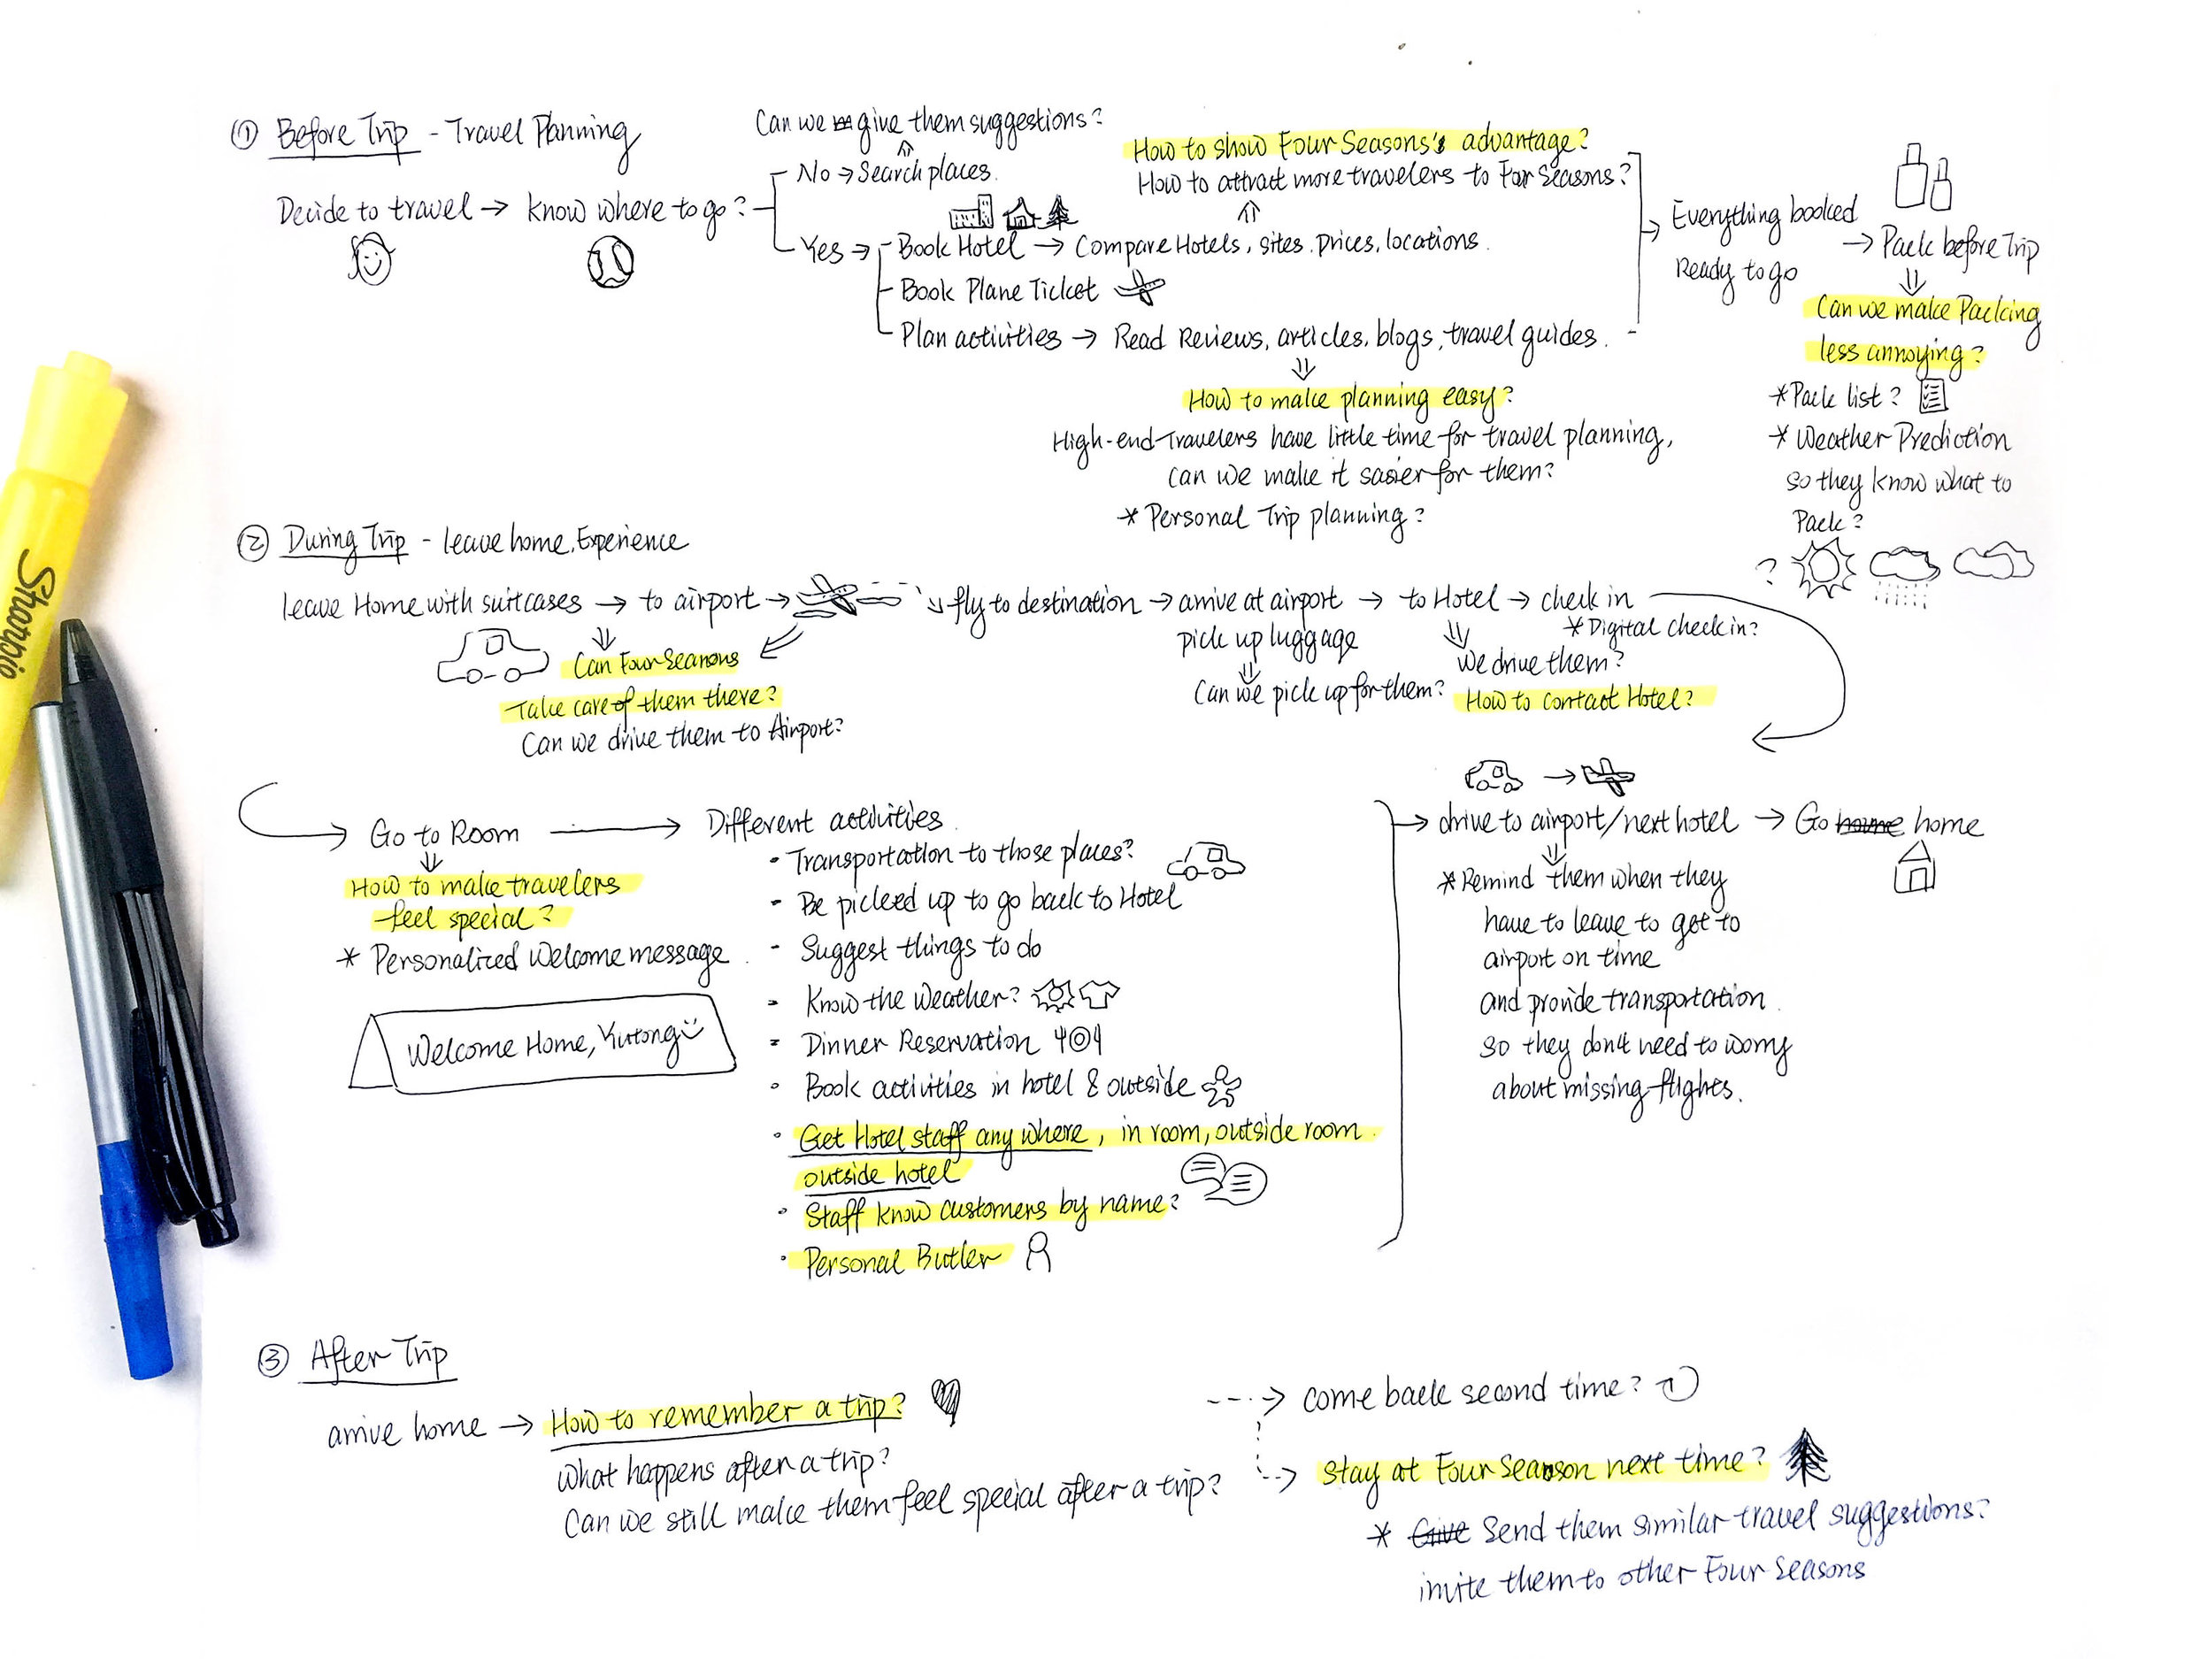 ① Before Trip - Travel Planning
Decide to travel → know where to go?
Can we give them suggestions?
No → Search places.
Yes → Book Hotel → Compare Hotels, sites. Prices, locations.
Book Plane Ticket
Plan activities → Read Reviews, articles, blogs, travel guides.
How to show Four Seasons's advantage?
How to attract more travelers to Four Seasons?
How to make planning easy?
High-end-Travelers have little time for travel planning,
can we make it easier for them?
* Personal Trip planning?
→ Everything booked
Ready to go
→ Pack before Trip
Can we make Packing
less annoying?
* Pack list?
* Weather Prediction
so they know what to
Pack?
?
② During Trip - leave home, Experience
leave Home with suitcases → to airport → fly to destination → arrive at airport → to Hotel → check in
pick up luggage
* Digital check in?
Can Four Seasons
Take care of them there?
Can we drive them to Airport?
Can we pick up for them?
We drive them?
How to contact Hotel?
Go to Room → Different activities
How to make travelers
feel special?
* Personalized Welcome message
Welcome Home, Yutong
• Transportation to those places?
- Be picked up to go back to Hotel
- Suggest things to do
- Know the Weather?
- Dinner Reservation
• Book activities in hotel & outside
• Get Hotel staff any where, in room, outside room
outside hotel
• Staff know customers by name?
• Personal Butler
→ drive to airport/next hotel → Go home home
* Remind them when they
have to leave to get to
airport on time
and provide transportation
so they don't need to worry
about missing flighes.
③ After Trip
arrive home → How to remember a trip?
What happens after a trip?
Can we still make them feel special after a trip?
→ come back second time?
→ Stay at Four Season next time?
* Give Send them similar travel suggestions?
invite them to other Four Seasons
Sharpie